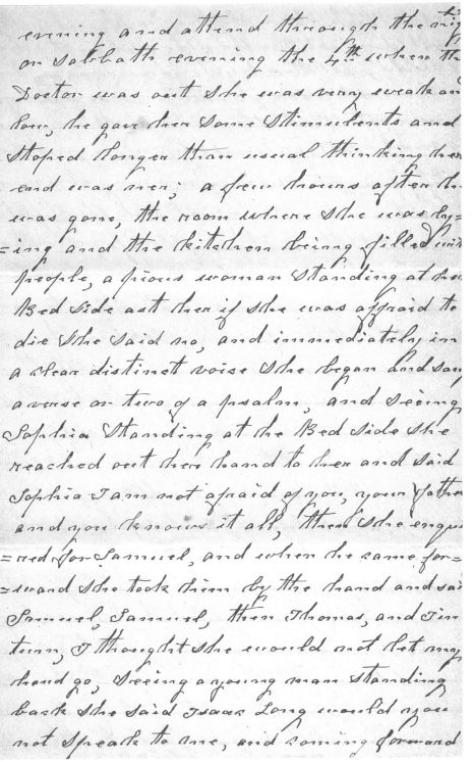 evening and attend through the nig
on Sabbath evening the 4th when the
Doctor was out she was very weak an
low, he gave her some stimulents and
stoped longer than usual thinking her
end was ner; a few hours after h
was gone, the room where she was ly=
=ing and the kitchen being filled with
people, a pious woman standing at her
Bed side ast her if she was affraid to
die she said no, and immediately in
a clear distinct voise she began and san
a verse or two of a psalm, and seeing
Sophia standing at the Bed side she
reached out her hand to her and said
Sophia I am not afraid of you, your father
and you knows it all, then she enqui
=red for Samuel, and when he came for=
=ward she took him by the hand and sai
Samuel, Samuel, then Thomas, and I in
turn, I thought she would not let my
hand go, seeing a young man standing
back she said Isaac Long would you
not speak to me, and coming forward